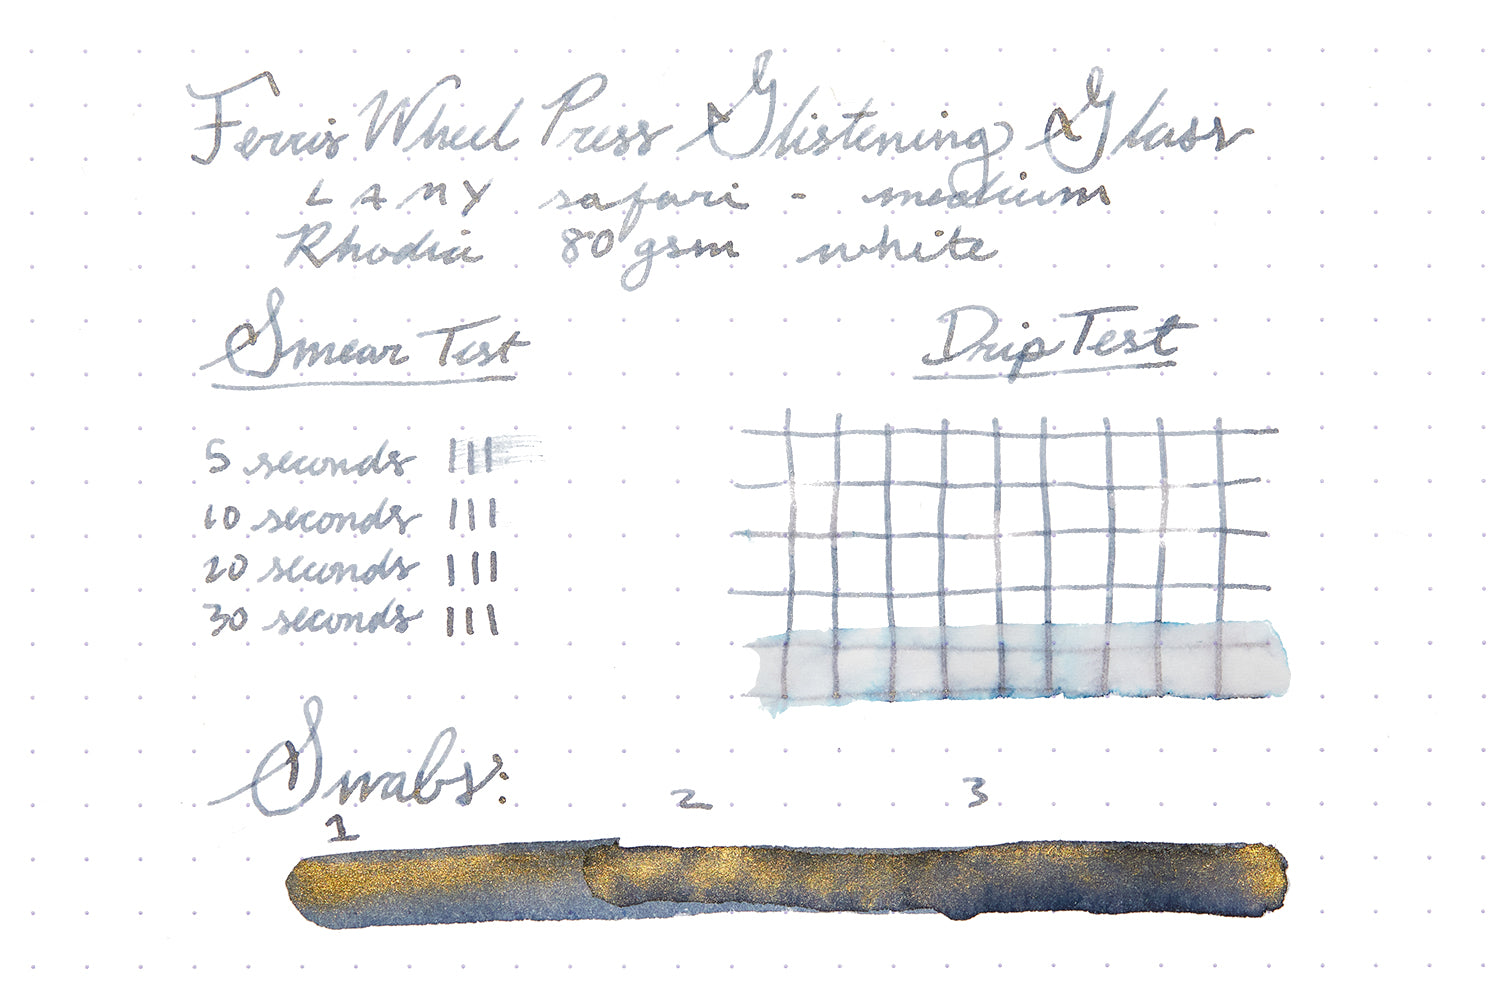 Ferris Wheel Press Glistening Glass
LAMY safari - medium
Rhodia 80 gsm white
Smear Test
Drip Test
5 seconds
10 seconds
20 seconds
30 seconds
Swabs:
1 2 3